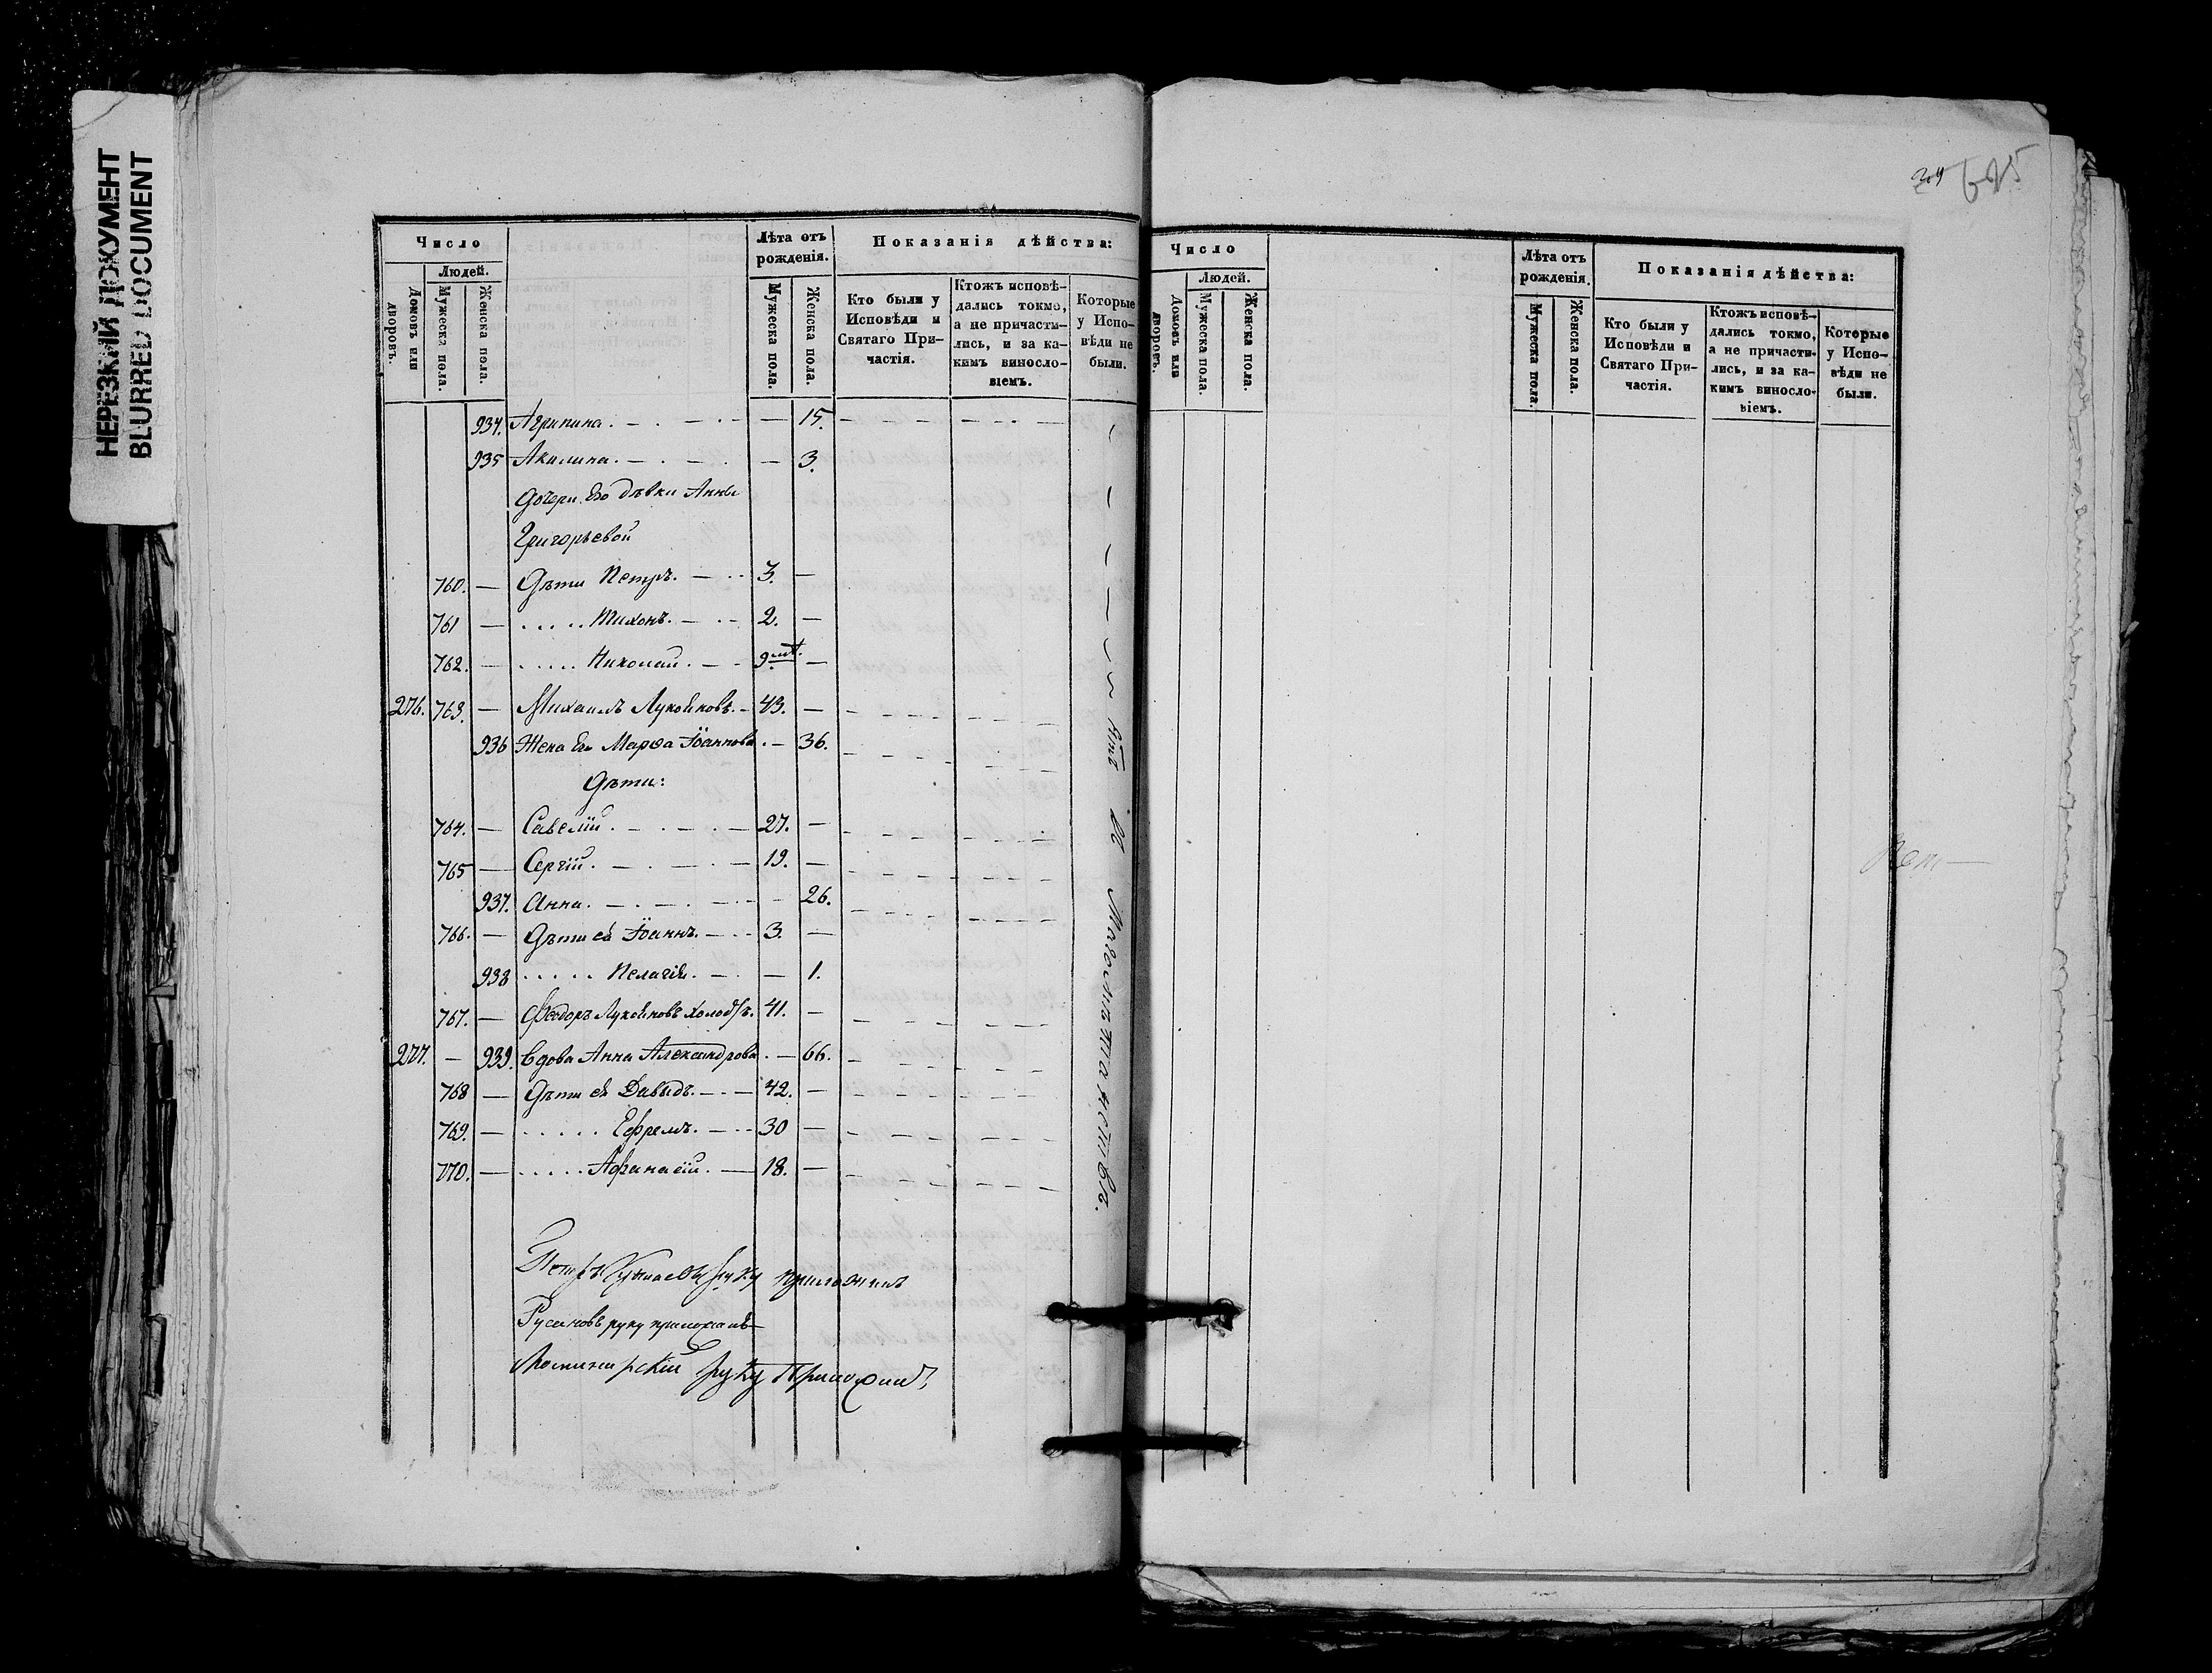 НЕРЕЗКИЙ ДОКУМЕНТ
BLURRED DOCUMENT
Число
Людей.
Домовъ или дворовъ.
Мужеска пола.
Женска пола.
Лѣта отъ рожденія.
Мужеска пола.
Женска пола.
Показанія дѣйства:
Кто были у Исповѣди и Святаго Причастія.
Ктожъ исповѣдались токмо, а не причастились, и за какимъ винословіемъ.
Которые у Исповѣди не были.
934. Агрипина. — 15.
935 Акилина. — 3.
Дочери Его дѣвки Анны
Григорьевой
760. — Дѣти Петръ. 3. —
761 — Тихонъ. 2. —
762. — Николай. 9 —
276. 763. — Михаилъ Лукояновъ. 43. —
936 Жена Его Марѳа Іоаннова. — 36.
Дѣти:
764. — Савелій. 27. —
765 — Сергій. 19. —
937. Анна. — 26.
766. — Дѣти её Іоаннъ. 3. —
938 Пелагія. — 1.
767. — Ѳеодоръ Лукояновъ 41. —
277. — 939. Вдова Анна Александрова. — 66.
768 — Дѣти её Давыдъ. 42. —
769. — Ефремъ. 30 —
770. — Афанасій. 18. —
Петръ руку приложилъ
Русановъ руку приложилъ
руку Приложилъ
Число
Людей.
Домовъ или дворовъ.
Мужеска пола.
Женска пола.
Лѣта отъ рожденія.
Мужеска пола.
Женска пола.
Показанія дѣйства:
Кто были у Исповѣди и Святаго Причастія.
Ктожъ исповѣдались токмо, а не причастились, и за какимъ винословіемъ.
Которые у Исповѣди не были.